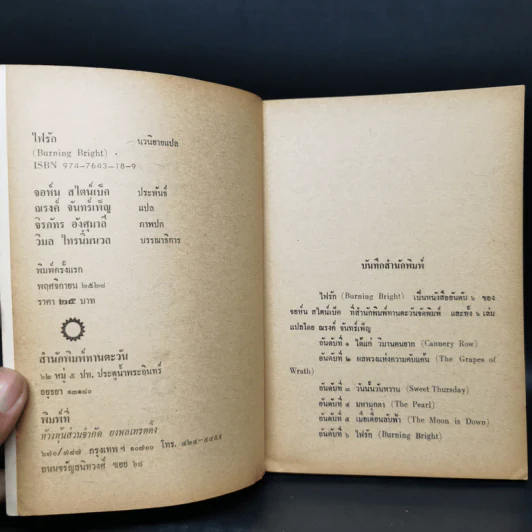 ไฟรัก นวนิยายแปล
(Burning Bright) .
ISBN 974-7643-18-9
จอห์น สไตน์เบ็ค ประพันธ์
ณรงค์ จันทร์เพ็ญ แปล
จิรภัทร อังศุมาลี ภาพปก
วิมล ไทรนิ่มนวล บรรณาธิการ
พิมพ์ครั้งแรก
พฤศจิกายน ๒๕๒๘
ราคา ๒๕ บาท
สำนักพิมพ์ทานตะวัน
๖๒ หมู่ ๕ ปท. ประตูน้ำพระอินทร์
อยุธยา ๑๓๑๘๐
พิมพ์ที่
ห้างหุ้นส่วนจำกัด ยงพลเทรดดิ้ง
กรุงเทพ ฯ ๑๐๗๐๐ โทร.
ถนนจรัญสนิทวงศ์ ซอย ๖๘
บันทึกสำนักพิมพ์
ไฟรัก (Burning Bright) เป็นหนังสืออันดับ ๖ ของ
จอห์น สไตน์เบ็ค ที่สำนักพิมพ์ทานตะวันจัดพิมพ์ และทั้ง ๖ เล่ม
แปลโดย ณรงค์ จันทร์เพ็ญ
อันดับที่ ๑ ได้แก่ วิมานคนยาก (Cannery Row)
อันดับที่ ๒ ผลพวงแห่งความคับแค้น (The Grapes of
Wrath)
อันดับที่ ๓ วันนั้นวันหวาน (Sweet Thursday)
อันดับที่ ๔ มหามุกดา (The Pearl)
อันดับที่ ๕ เมื่อเดือนลับฟ้า (The Moon is Down)
อันดับที่ ๖ ไฟรัก (Burning Bright)